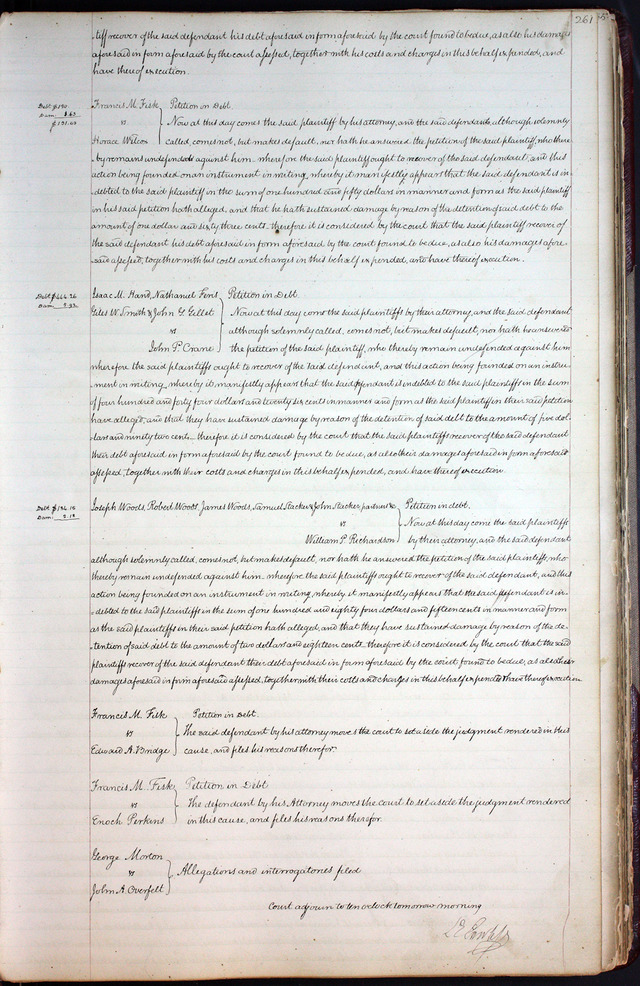 261
tiff recover of the said defendant his debt aforesaid in form aforesaid by the court found to be due, as also his damages
aforesaid in form aforesaid by the court assessed, together with his costs and charges in this behalf expended, and
have thereof execution.
Debt $150.
Dam. 1.63
$151.63
Francis M. Fisk
vs
Horace Wilcox
Petition in Debt.
Now at this day comes the said plaintiff by his attorney, and the said defendant, although solemnly
called, comes not, but makes default, nor hath he answered the petition of the said plaintiff, who there
by remains undefended against him. wherefore the said plaintiff ought to recover of the said defendant, and this
action being founded on an instrument in writing, whereby it manifestly appears that the said defendant is in
debted to the said plaintiff in the sum of one hundred and fifty dollars in manner and form as the said plaintiff
in his said petition hath alleged, and that he hath sustained damage by reason of the detention of said debt to the
amount of one dollar and sixty three cents. therefore it is considered by the court that the said plaintiff recover of
the said defendant his debt aforesaid in form aforesaid by the court found to be due, as also his damages afore-
said assessed, together with his costs and charges in this behalf expended, and to have thereof execution.
Debt $444.26
Dam. 5.92
Isaac M. Hand, Nathaniel
Giles W. Smith & John G. Gellet
vs
John P. Crane
Petition in Debt
Now at this day come the said plaintiffs by their attorney, and the said defendant
although solemnly called, comes not, but makes default, nor hath he answered
the petition of the said plaintiff, who thereby remain undefended against him
wherefore the said plaintiffs ought to recover of the said defendant, and this action being founded on an instru-
ment in writing, whereby it manifestly appear that the said defendant is indebted to the said plaintiffs in the sum
of four hundred and forty four dollars and twenty six cents in manner and form as the said plaintiffs in their said petition
have alleged, and that they have sustained damage by reason of the detention of said debt to the amount of five dol-
lars and ninety two cents. therefore it is considered by the court that the said plaintiffs recover of the said defendant
their debt aforesaid in form aforesaid by the court found to be due, as also their damages aforesaid in form aforesaid
assessed, together with their costs and charges in this behalf expended, and have thereof execution.
Debt $184.15
Dam. 2.18
Joseph Woods, Robert Woods, James Woods, Samuel Stacker & John Stacker,
vs
William P. Richardson
Petition in debt.
Now at this day come the said plaintiffs
by their attorney, and the said defendant
although solemnly called, comes not, but makes default, nor hath he answered the petition of the said plaintiffs, who
thereby remain undefended against him. wherefore the said plaintiffs ought to recover of the said defendant, and this
action being founded on an instrument in writing, whereby it manifestly appears that the said defendant is in-
debted to the said plaintiffs in the sum of one hundred and eighty four dollars and fifteen cents in manner and form
as the said plaintiffs in their said petition hath alleged, and that they have sustained damage by reason of the de-
tention of said debt to the amount of two dollars and eighteen cents. therefore it is considered by the court that the said
plaintiffs recover of the said defendant their debt aforesaid in form aforesaid by the court found to be due, as also their
damages aforesaid in form aforesaid assessed, together with their costs and charges in this behalf expended & have thereof execution
Francis M. Fisk
vs
Edward A. Bridge
Petition in Debt.
The said defendant by his attorney moves the court to set aside the judgment rendered in this
cause, and files his reasons therefor.
Francis M. Fisk
vs
Enoch Perkins
Petition in Debt
The defendant by his Attorney moves the court to set aside the judgment rendered
in this cause, and files his reasons therefor.
George Morton
vs
John A. Overfelt
Allegations and interrogatories filed
Court adjourn to ten oclock tomorrow morning